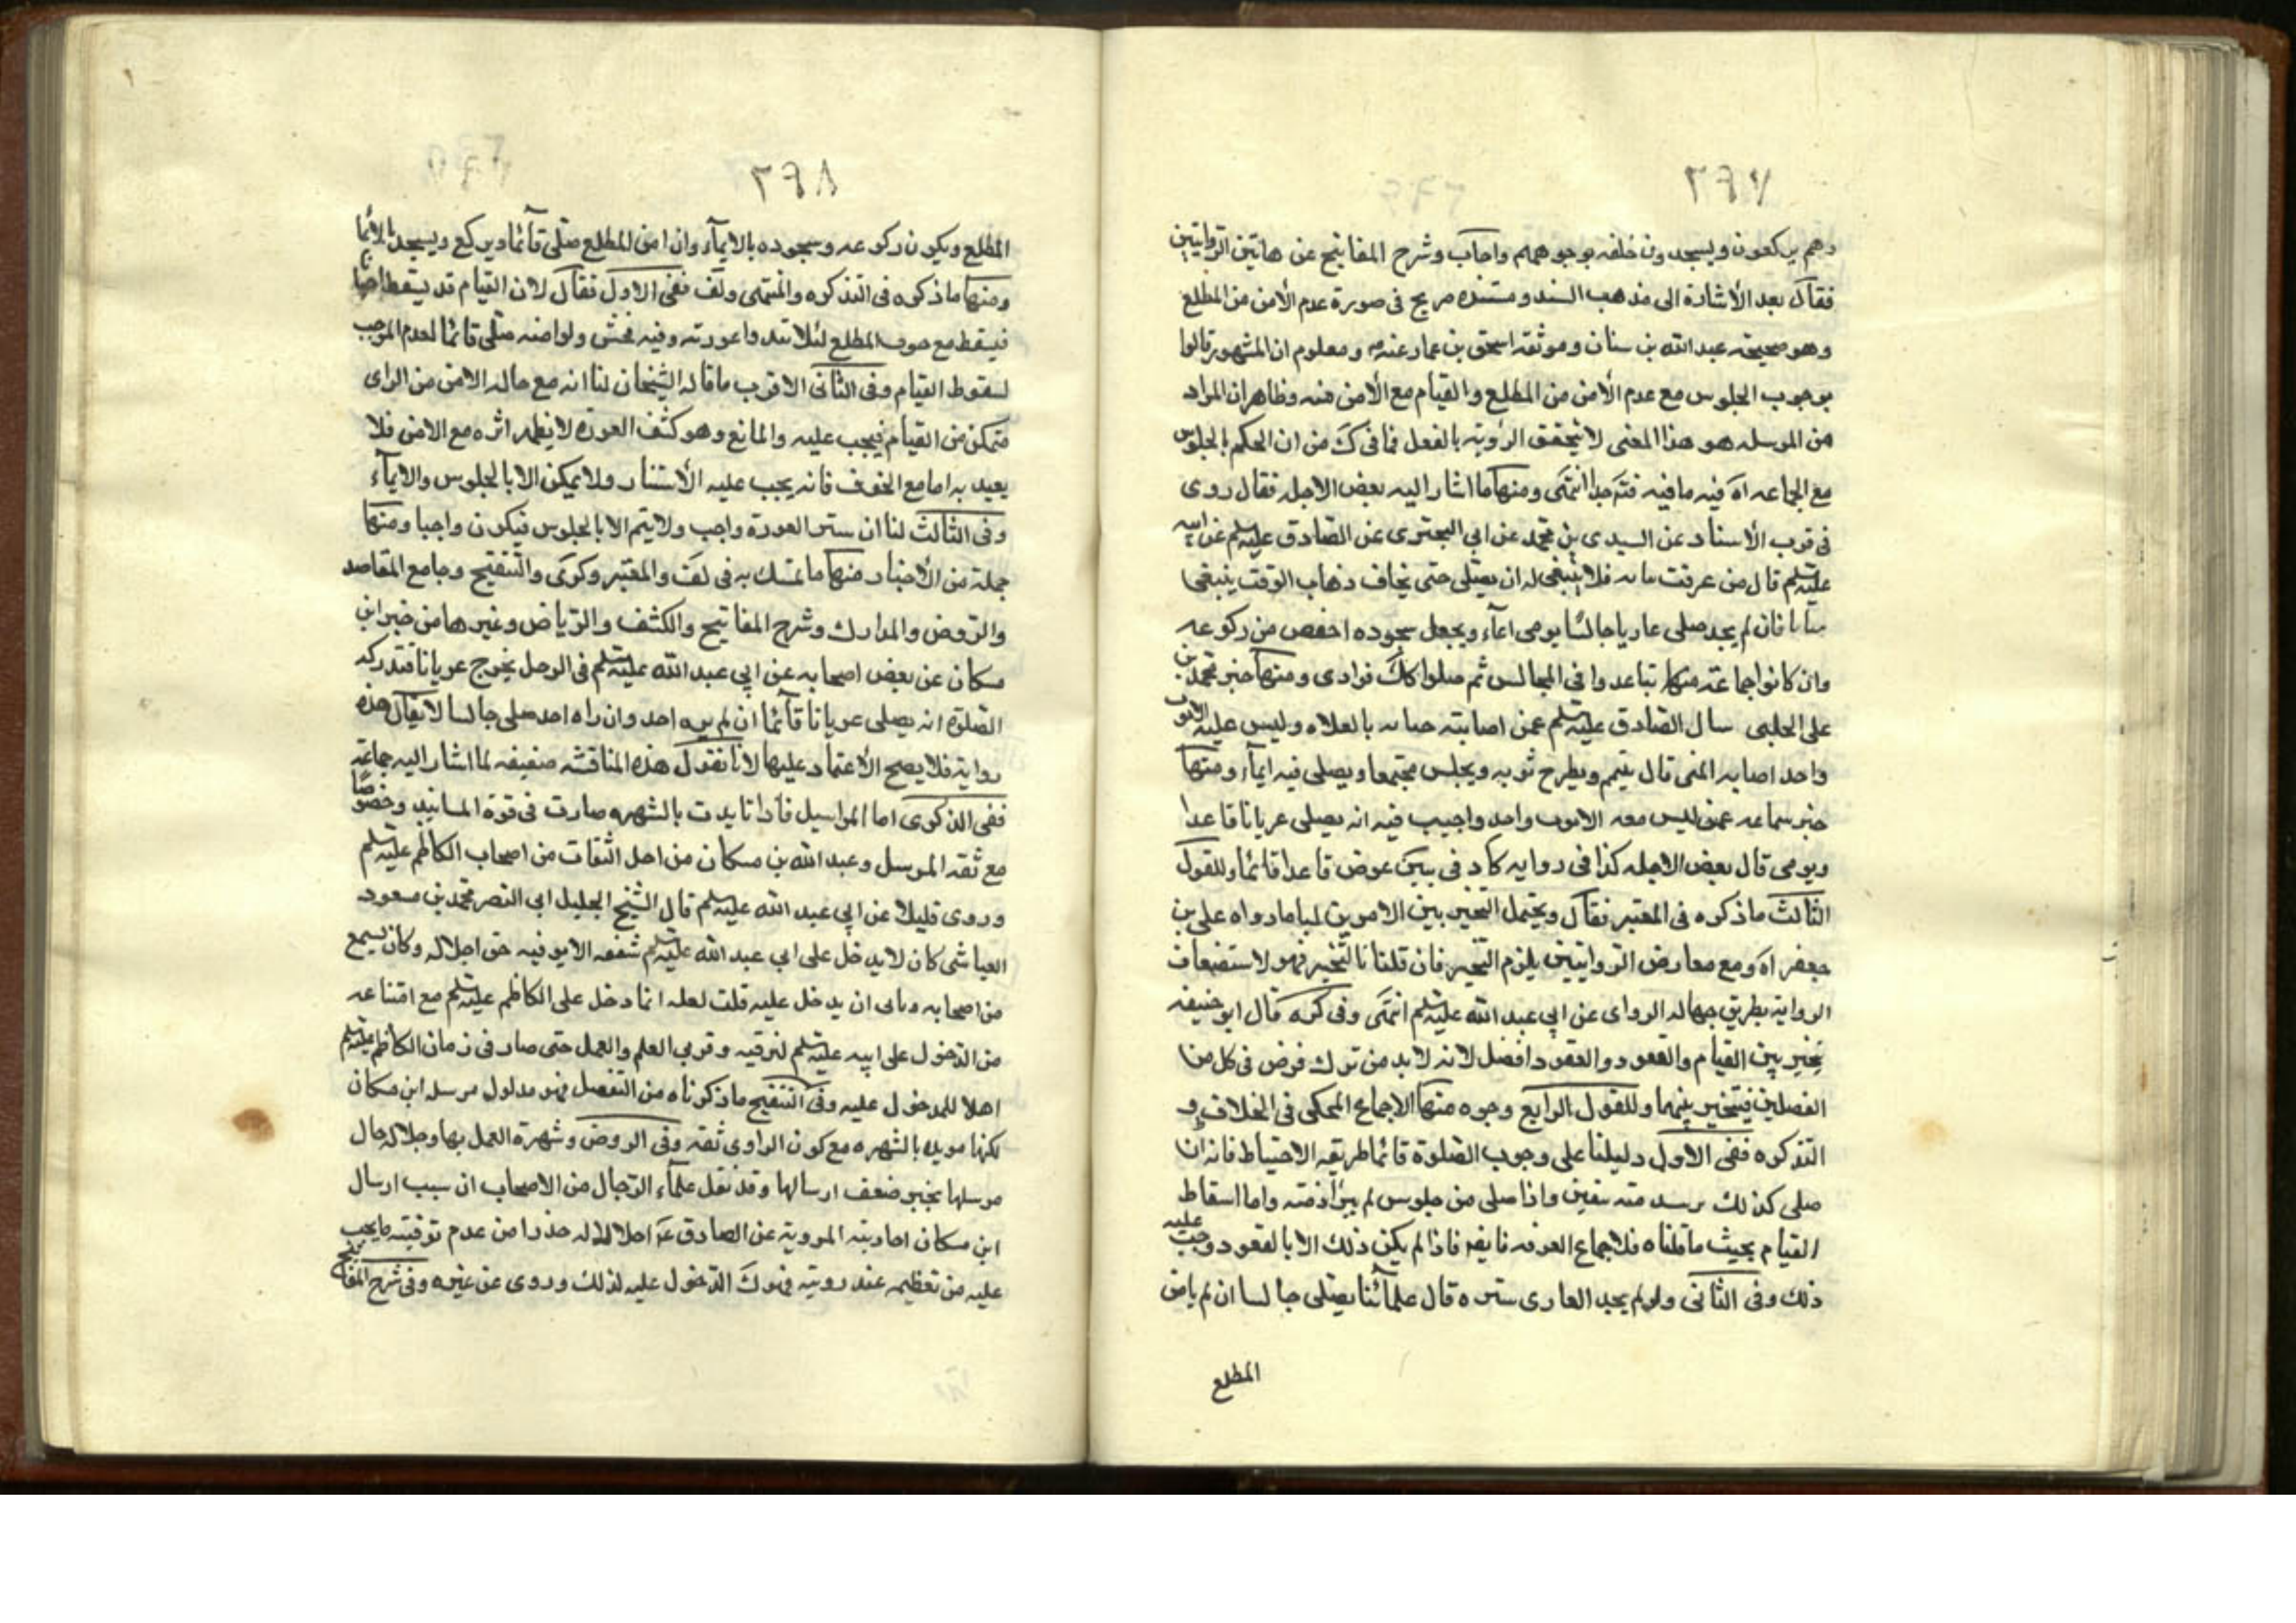 ٢٦٧
وهم يركعون ويسجدون خلفه بوجوههم واجاب وشرح المفاتيح عن هاتين الروايتين
فقال بعد الأشارة الى مذهب السند ومستنده صريح فى صورة عدم الأمن من المطلع
وهو صحيحه عبد الله بن سنان وموثقه اسحق بن عمار عنه ومعلوم ان المشهور قالوا
بوجوب الجلوس مع عدم الأمن من المطلع والقيام مع الأمن منه وظاهر ان المراد
من المرسله هو هذا المعنى لا تحقق الرؤيته بالفعل فما فى ك من ان الحكم بالجلوس
مع الجماعه اه فيه ما فيه جدا انتهى ومنها ما اشار اليه بعض الاجله فقال روى
فى قرب الأسناد عن السيدى بن محمد عن ابى البخترى عن الصادق عليه السلم عن ابيه
عليه السلم قال من غرقت ثيابه فلا ينبغى له ان يصلى حتى يخاف ذهاب الوقت ينبغى
ثيابا فان لم يجد صلى عاريا جالسا يومى ايماء ويجعل سجوده اخفض من ركوعه
وان كانوا جماعة تباعدوا فى المجالس ثم صلوا كك فرادى ومنها خبر محمد بن
على الحلبى سال الصادق عليه السلم عمن اصابته جنابه بالفلاه وليس عليه الا ثوب
واحد اصابه المنى قال يتيمم ويطرح ثوبه ويجلس مجتمعا ويصلى فيه ايماء ومنها
خبر سماعه عمن ليس معه الا ثوب واحد واجيب فيه انه يصلى عريانا قاعدا
ويومى قال بعض الاجله كذا فى روايه كا وفى يب عوض قاعدا قائما وللقول
الثالث ماذكره فى المعتبر فقال ويحتمل التخيير بين الامرين لما رواه على بن
جعفر اه ومع معارض الروايتين يلزم التخيير فان قلنا بالتخيير فهو لاستضعاف
الرواية بطريق جهاله الرواى عن ابى عبد الله عليه السلم انتهى وفى كره قال ابو حنيفه
يخير بين القيام والقعود والقعود افضل لانه لابد من ترك فرض فى كل من
الفصلين فيتخير بينهما وللقول الرابع وجوه منها الاجماع المحكى فى الخلاف و
التذكره ففى الاول دليلنا على وجوب الصلوة قائما طريقه الاحتياط فانه اذا
صلى كذلك برئت ذمته بيقين واذا صلى من جلوس لم يبرأ ذمته واما اسقاط
القيام بحيث ماقلناه فلاجماع الفرقه فاذا لم يكن ذلك الا بالقعود وجب عليه
ذلك وفى الثانى ولو لم يجد العارى ستره قال علمائنا يصلى جالسا ان لم يامن
المطلع
٢٦٨
المطلع ويكون ركوعه وسجوده بالايماء وان امن المطلع صلى قائما ويركع ويسجد بالايماء
ومنها ماذكره فى التذكره والمنتهى ولف ففى الاول فقال لان القيام قد يسقط احيانا
فيسقط مع خوف المطلع لئلا تبدوا عورته وفيه فحش ولو امنه صلى قائما لعدم الموجب
لسقوط القيام وفى الثانى الاقرب ماقاله الشيخان لنا انه مع حاله الامن من الراى
متمكن من القيام فيجب عليه والمانع وهو كشف العورة لا يظهر اثره مع الامن فلا
يعيد به اما مع الخوف فانه يجب عليه الأستتار ولا يمكن الا بالجلوس والايماء
وفى الثالث لنا ان ستر العورة واجب ولا يتم الا بالجلوس فيكون واجبا ومنها
جملة من الأخبار منها ماتمسك به فى لف والمعتبر وكرى والتنقيح وجامع المقاصد
والروض والمدارك وشرح المفاتيح والكشف والرياض وغيرها من خبر ابن
مسكان عن بعض اصحابه عن ابى عبد الله عليه السلم فى الرجل يخرج عريانا فتدركه
الصلوة انه يصلى عريانا قائما ان لم يره احد وان راه احد صلى جالسا لا يقال هذه
رواية فلا يصح الأعتماد عليها لانا نقول هذه المناقشه ضعيفه لما اشار اليه جماعة
ففى الذكرى اما المراسيل فاذا تايدت بالشهره صارت فى قوة المسانيد وخصوصا
مع ثقه المرسل وعبد الله بن مسكان من اجل الثقات من اصحاب الكاظم عليه السلم
وروى قليلا عن ابى عبد الله عليه السلم قال الشيخ الجليل ابى النصر محمد بن مسعود
العياشى كان لايدخل على ابى عبد الله عليه السلم شفقه الا يوفيه حق اجلاله وكان يسمع
من اصحابه ويابى ان يدخل عليه قلت لعله انما دخل على الكاظم عليه السلم مع امتناعه
من الدخول على ابيه عليه السلم لترقيه وقربى العلم والعمل حتى صار فى زمان الكاظم عليه السلم
اهلا للدخول عليه وفى التنقيح ماذكرناه من التفصيل فهو مدلول مرسله ابن مسكان
لكنها مويده بالشهره مع كون الراوى ثقه وفى الروض وشهرة العمل بها وجلاله حال
مرسلها يجبر ضعف ارسالها وقد نقل علماء الرجال من الاصحاب ان سبب ارسال
ابن مسكان احاديثه المروية عن الصادق ع اجلالا له حذرا من عدم توفيته مايجب
عليه من تعظيمه عند رويته فترك الدخول عليه لذلك وروى عن غيره وفى شرح المفاتيح